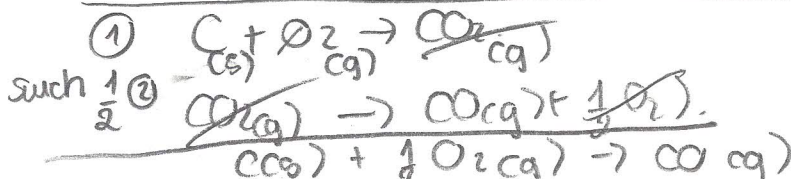 ① C(s) + O2(g) → CO2(g)
such 1/2 ② CO2(g) → CO(g) + 1/2 O2).
C(s) + 1/2 O2(g) → CO(g)